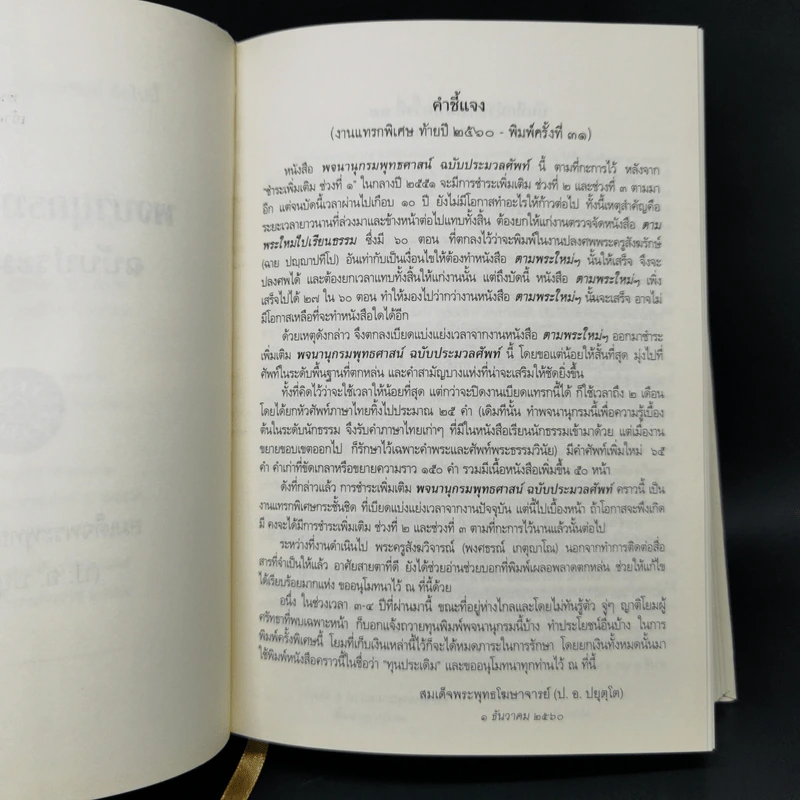 คำชี้แจง
(งานแทรกพิเศษ ท้ายปี ๒๕๖๐ - พิมพ์ครั้งที่ ๓๑)
หนังสือ พจนานุกรมพุทธศาสน์ ฉบับประมวลศัพท์ นี้ ตามที่กะการไว้ หลังจาก
"ชำระเพิ่มเติม ช่วงที่ ๑" ในกลางปี ๒๕๕๑ จะมีการชำระเพิ่มเติม ช่วงที่ ๒ และช่วงที่ ๓ ตามมา
อีก แต่จนบัดนี้เวลาผ่านไปเกือบ ๑๐ ปี ยังไม่มีโอกาสทำอะไรให้ก้าวต่อไป ทั้งนี้เหตุสำคัญคือ
ระยะเวลายาวนานที่ล่วงมาและข้างหน้าต่อไปแทบทั้งสิ้น ต้องยกให้แก่งานตรวจจัดหนังสือ ตาม
พระใหม่ไปเรียนธรรม ซึ่งมี ๖๐ ตอน ที่ตกลงไว้ว่าจะพิมพ์ในงานปลงศพพระครูสังฆรักษ์
(ฉาย ปญฺญาปทีโป) อันเท่ากับเป็นเงื่อนไขให้ต้องทำหนังสือ ตามพระใหม่ๆ นั้นให้เสร็จ จึงจะ
ปลงศพได้ และต้องยกเวลาแทบทั้งสิ้นให้แก่งานนั้น แต่ถึงบัดนี้ หนังสือ ตามพระใหม่ๆ เพิ่ง
เสร็จไปได้ ๒๗ ใน ๖๐ ตอน ทำให้มองไปว่ากว่างานหนังสือ ตามพระใหม่ๆ นั้นจะเสร็จ อาจไม่
มีโอกาสเหลือที่จะทำหนังสือใดได้อีก
ด้วยเหตุดังกล่าว จึงตกลงเบียดแบ่งแย่งเวลาจากงานหนังสือ ตามพระใหม่ๆ ออกมาชำระ
เพิ่มเติม พจนานุกรมพุทธศาสน์ ฉบับประมวลศัพท์ นี้ โดยขอแต่น้อยให้สั้นที่สุด มุ่งไปที่
ศัพท์ในระดับพื้นฐานที่ตกหล่น และคำสามัญบางแห่งที่น่าจะเสริมให้ชัดยิ่งขึ้น
ทั้งที่คิดไว้ว่าจะใช้เวลาให้น้อยที่สุด แต่กว่าจะปิดงานเบียดแทรกนี้ได้ ก็ใช้เวลาถึง ๒ เดือน
โดยได้ยกหัวศัพท์ภาษาไทยทิ้งไปประมาณ ๒๕ คำ (เดิมทีนั้น ทำพจนานุกรมนี้เพื่อความรู้เบื้อง
ต้นในระดับนักธรรม จึงรับคำภาษาไทยเก่าๆ ที่มีในหนังสือเรียนนักธรรมเข้ามาด้วย แต่เมื่องาน
ขยายขอบเขตออกไป ก็รักษาไว้เฉพาะคำพระและศัพท์พระธรรมวินัย) มีคำศัพท์เพิ่มใหม่ ๖๕
คำ คำเก่าที่ขัดเกลาหรือขยายความราว ๑๕๐ คำ รวมมีเนื้อหนังสือเพิ่มขึ้น ๕๐ หน้า
ดังที่กล่าวแล้ว การชำระเพิ่มเติม พจนานุกรมพุทธศาสน์ ฉบับประมวลศัพท์ คราวนี้ เป็น
งานแทรกพิเศษกระชั้นชิด ที่เบียดแบ่งแย่งเวลาจากงานปัจจุบัน แต่นี้ไปเบื้องหน้า ถ้าโอกาสจะพึงเกิด
มี คงจะได้มีการชำระเพิ่มเติม ช่วงที่ ๒ และช่วงที่ ๓ ตามที่กะการไว้นานแล้วนั้นต่อไป
ระหว่างที่งานดำเนินไป พระครูสังฆวิจารณ์ (พงศธรณ์ เกตุญาโณ) นอกจากทำการติดต่อสื่อ
สารที่จำเป็นให้แล้ว อาศัยสายตาที่ดี ยังได้ช่วยอ่านช่วยบอกที่พิมพ์เผลอพลาดตกหล่น ช่วยให้แก้ไข
ได้เรียบร้อยมากแห่ง ขออนุโมทนาไว้ ณ ที่นี้ด้วย
อนึ่ง ในช่วงเวลา ๓-๔ ปีที่ผ่านมานี้ ขณะที่อยู่ห่างไกลและโดยไม่ทันรู้ตัว จู่ๆ ญาติโยมผู้
ศรัทธาที่พบเฉพาะหน้า ก็บอกแจ้งถวายทุนพิมพ์พจนานุกรมนี้บ้าง ทำประโยชน์อื่นบ้าง ในการ
พิมพ์ครั้งพิเศษนี้ โยมที่เก็บเงินเหล่านี้ไว้ก็จะได้หมดภาระในการรักษา โดยยกเงินทั้งหมดนั้นมา
ใช้พิมพ์หนังสือคราวนี้ในชื่อว่า "ทุนประเดิม" และขออนุโมทนาทุกท่านไว้ ณ ที่นี้
สมเด็จพระพุทธโฆษาจารย์ (ป. อ. ปยุตฺโต)
๑ ธันวาคม ๒๕๖๐